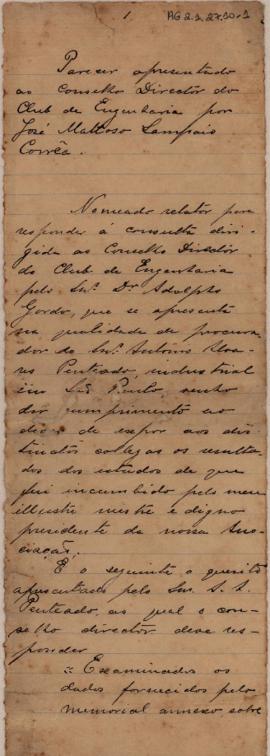 1
AG 2.2.27.30-1
Parecer apresentado
ao Conselho Director do
Club de Engenharia por
José Mattoso Sampaio
Corrêa.
Nomeado relator para
responder á consulta diri-
gida ao Conselho Director
do Club de Engenharia
pelo Snr. Dr. Adolpho
Gordo, que se apresenta
na qualidade de procura-
dor do Snr. Antonio Alva-
res Penteado, industrial
em São Paulo, venho
dar cumprimento ao
dever de expor aos dis-
tinctos collegas os resulta-
dos dos estudos de que
fui incumbido pelo meu
illustre mestre e digno
presidente da nossa Asso-
ciação.
É o seguinte o quesito
apresentado pelo Snr. A. A.
Penteado, ao qual o con-
selho director deve res-
ponder
= Examinados os
dados fornecidos pelo
memorial annexo sobre